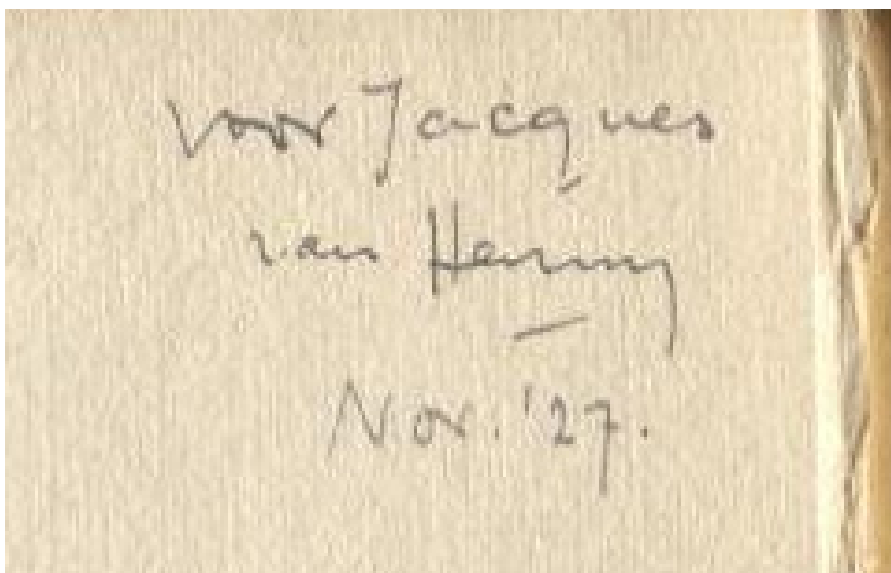 voor Jacques
van Henny
Nov. '27.